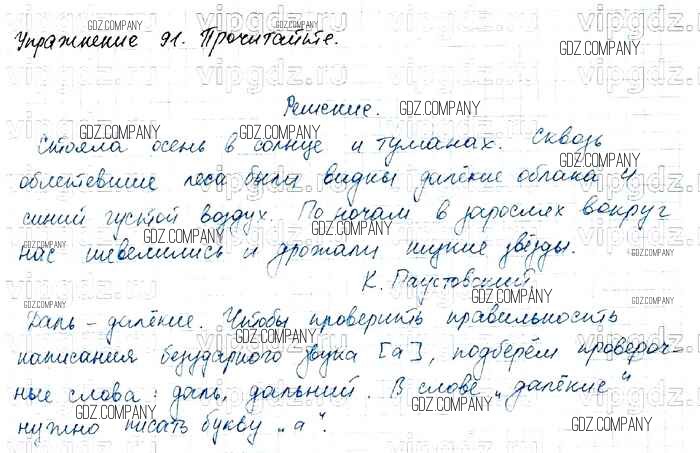 Упражнение 91. Прочитайте.
Решение.
Стояла осень в солнце и туманах. Сквозь
облетевшие леса были видны далёкие облака и
синий густой воздух. По ночам в зарослях вокруг
нас шевелились и дрожали низкие звёзды.
К. Паустовский.
Даль – далёкие. Чтобы проверить правильность
написания безударного звука [а], подберём провероч-
ные слова: даль, дальний. В слове „далёкие"
нужно писать букву „а".
GDZ.COMPANY
vipgdz.ru